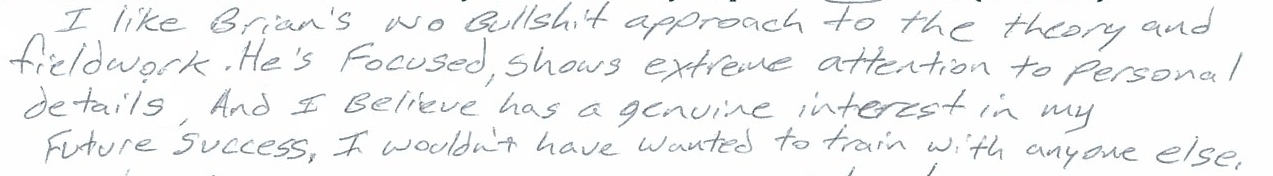 I like Brian's no Bullshit approach to the theory and
fieldwork. He's Focused, shows extreme attention to Personal
details, And I Believe has a genuine interest in my
Future Success, I wouldn't have wanted to train with anyone else.